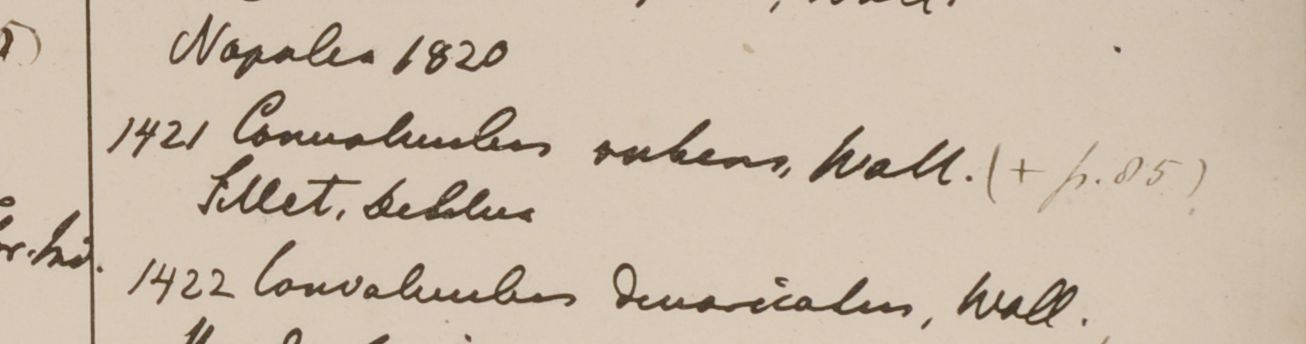 Wall.
Napalea 1820
1421 Convolvulus rubens, Wall. (+ p. 85)
Sillet,
1422 Convolvulus divaricatus, Wall.